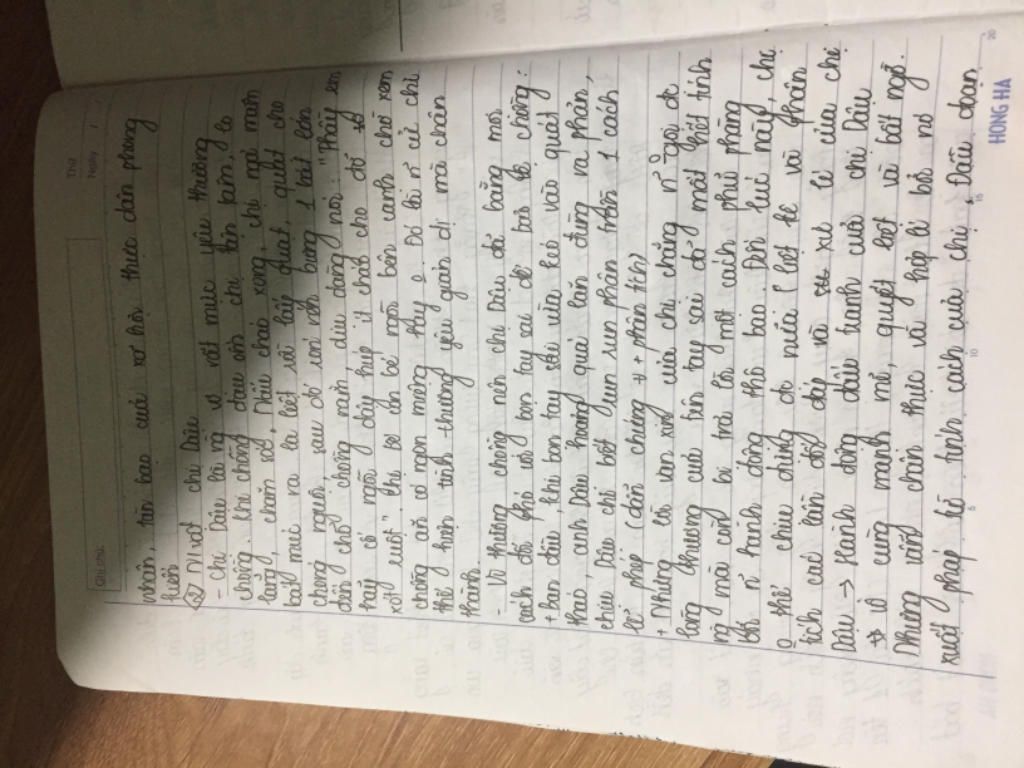 Thứ
Ngày
Ghi chú
nhân, tàn bạo của xã hội thực dân phong
kiến
2) N vật chị Dậu
- Chị Dậu là ng vợ vợ hết mực yêu thương
chồng. Khi chồng đau ốm chị tận tâm, lo
lắng, chăm sóc. Nấu cháo xong, chị ngả mâm
bát múc ra la liệt rồi lấy quạt, quạt cho
chóng nguội, sau đó rón rén bưng 1 bát lớn
đến chỗ chồng mình, dịu dàng nói: "Thầy em
hãy cố ngồi dậy húp ít cháo cho đỡ
xót ruột". Chị se còn bế ngồi bên cạnh chờ xem
chồng ăn có ngon miệng hay o. Đó là n~ cử chỉ
thể hiện tình thương yêu giản dị mà chân
thành.
- Vì thương chồng nên chị Dậu đã bằng mọi
cách đối phó với bọn tay sai để bảo vệ chồng:
+ Ban đầu, khi bọn tay sai vừa kéo vào quát
tháo, anh Dậu hoảng quá lăn đùng ra phản,
chị Dậu chỉ biết run run phân trần 1 cách
lễ phép (dẫn chứng + phân tích)
+ Những lời van xin của chị chẳng n~ gợi đc
lòng thương của bọn tay sai đó mất hết tính
ng mà còn bị trả lời một cách phũ phàng
n~ hành động thô bạo. Đến lúc này, chị
o thể chịu đựng đc nữa (liệt kê và phân
tích các lần đối đáp và xử lí của chị
Dậu -> Hành động đấu tranh của chị Dậu
vô cùng mạnh mẽ, quyết liệt và bất ngờ.
Nhưng cũng chân thực và hợp lí bởi nó
xuất phát từ tính cách của chị Dậu, đoạn
5
10
15
20
HONG HA